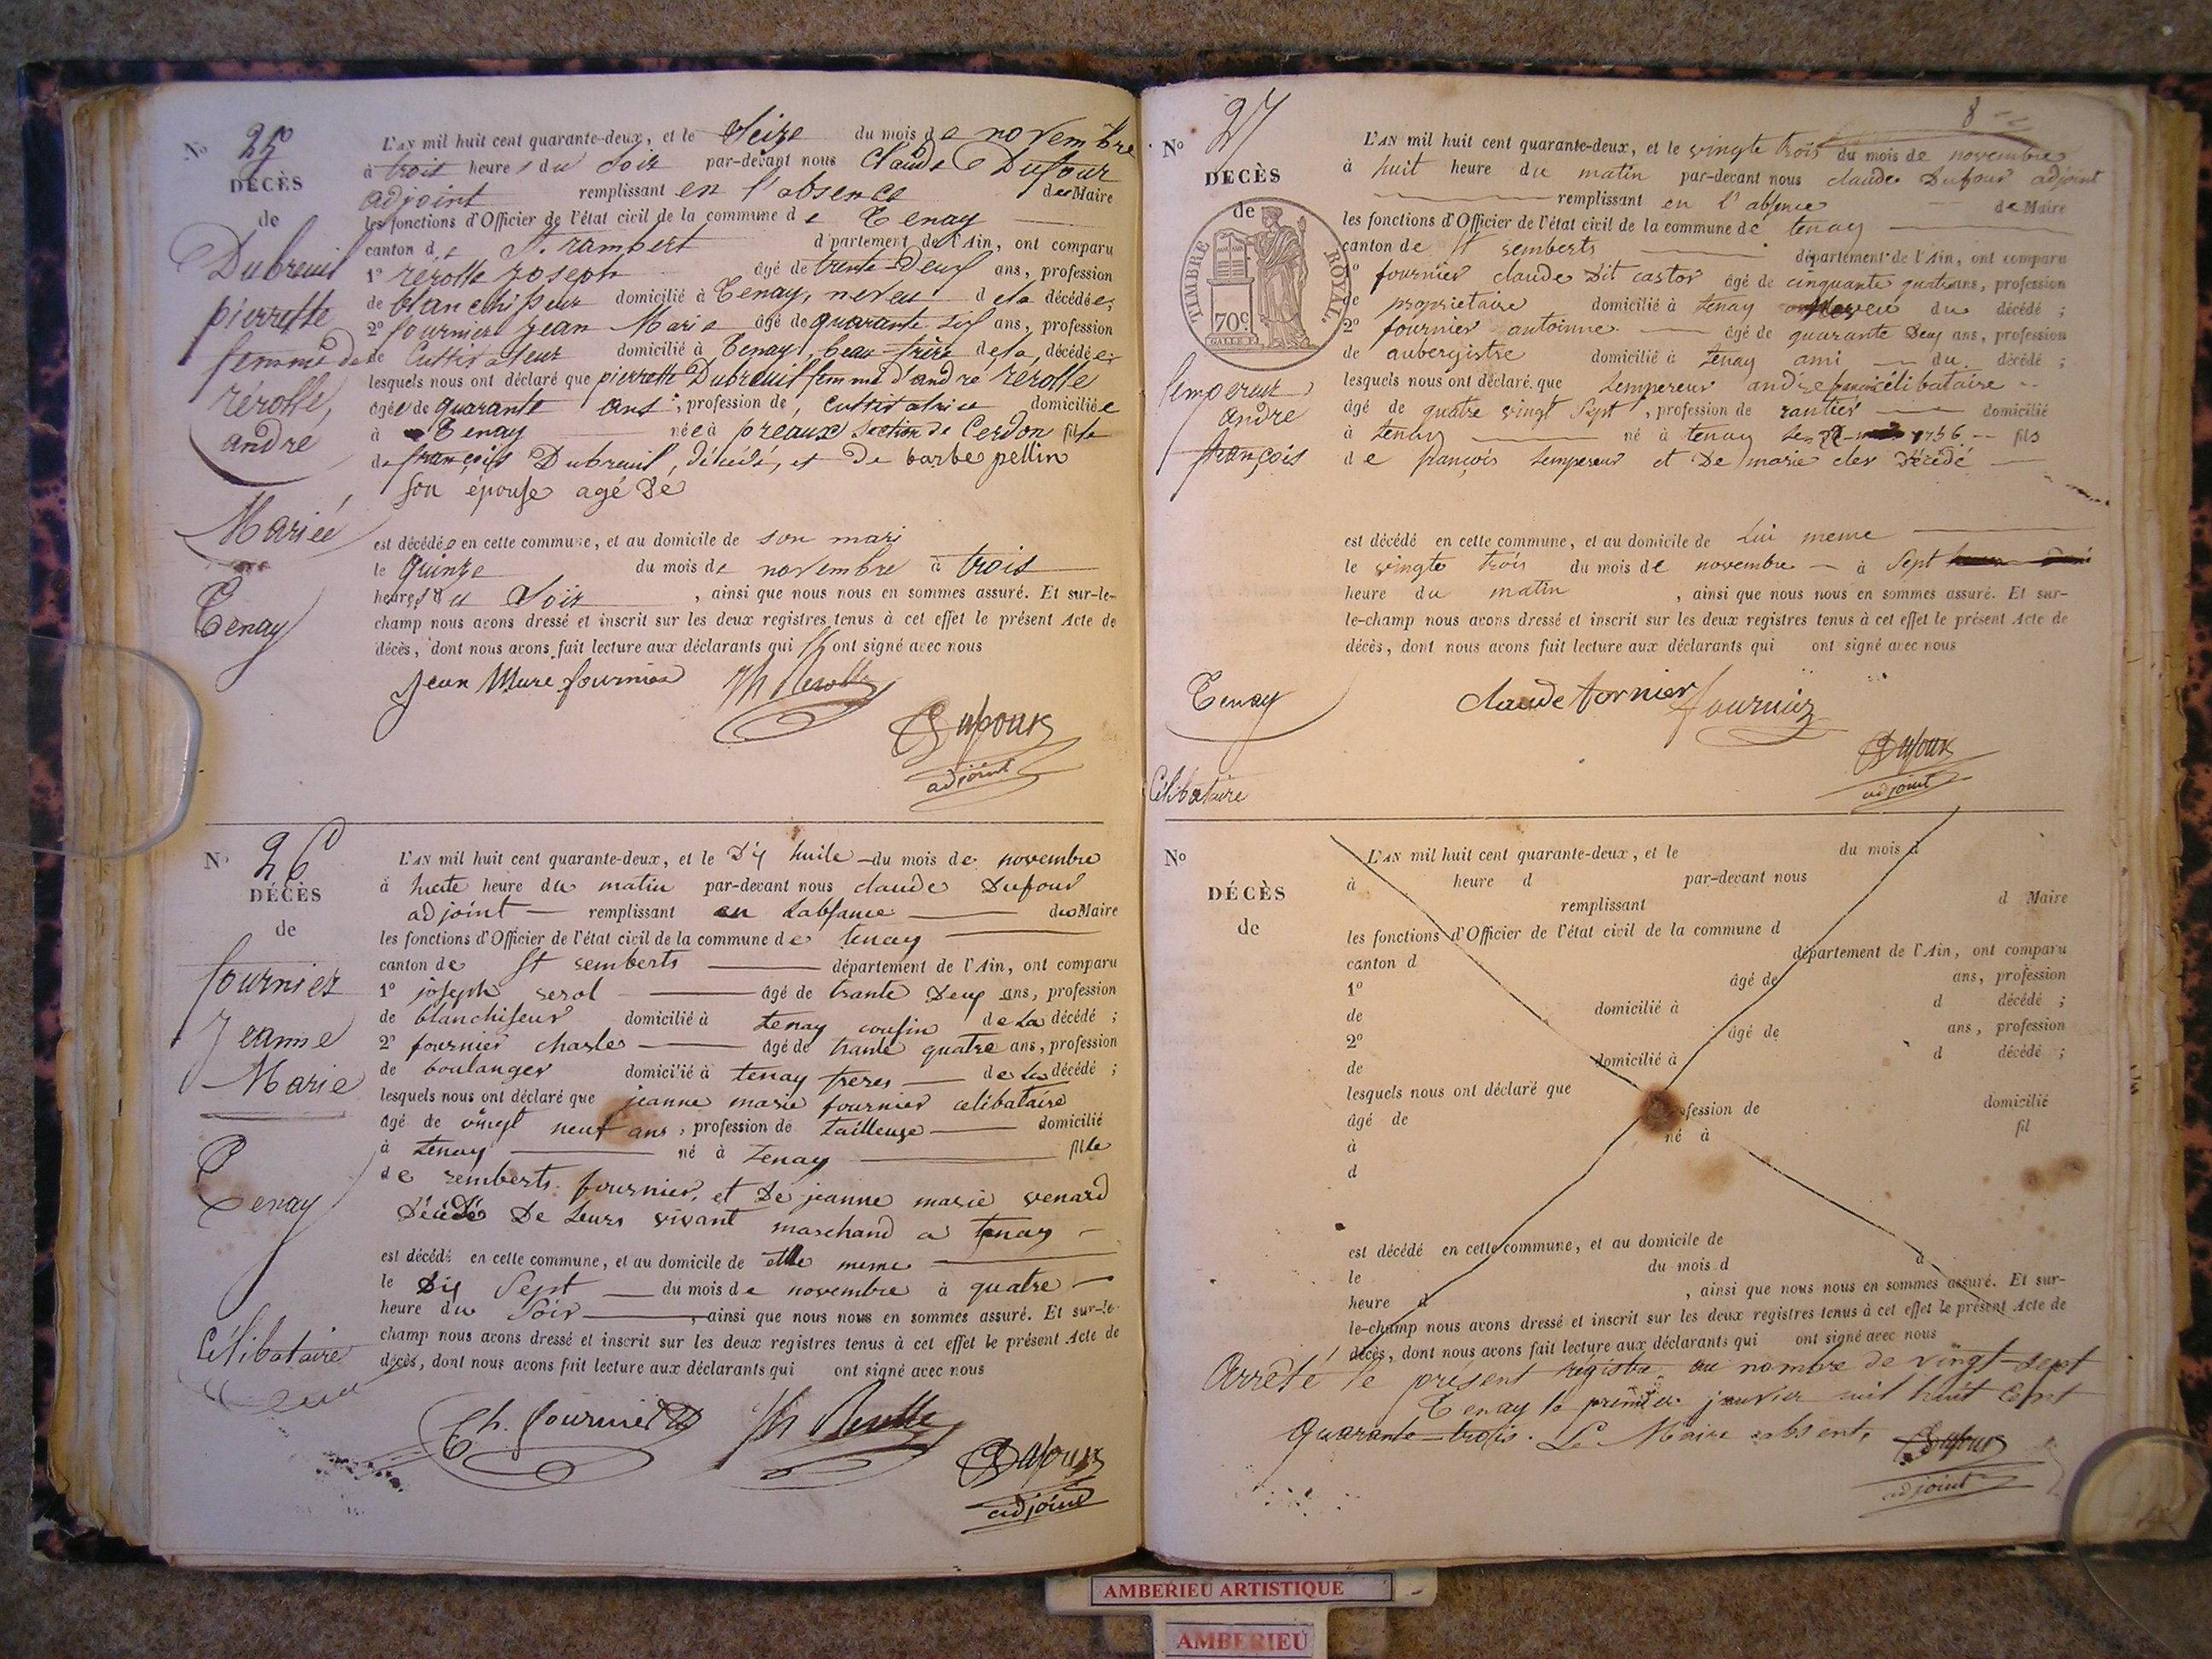 No 25
DÉCÈS
de
Dubreuil
pierrette
femme de
rérolle
andré
Mariée
Tenay
L'AN mil huit cent quarante-deux, et le Seize du mois de novembre
à trois heures du Soir par-devant nous Claude Dufour
adjoint remplissant en l'absence du Maire
les fonctions d'Officier de l'état civil de la commune de Tenay
canton de St. rambert département de l'Ain, ont comparu
1º rérolle Joseph âgé de trente-Deux ans, profession
de blanchisseur domicilié à Tenay, neveu de la décédée;
2º fournier Jean Marie âgé de quarante six ans, profession
de Cultivateur domicilié à Tenay, beau-frère de la décédée;
lesquels nous ont déclaré que pierrette Dubreuil femme d'andré rérolle
âgée de quarante ans, profession de, Cultivatrice domiciliée
à Tenay née à preaux Section de Cerdon fille
de françois Dubreuil, décédé, et de barbe pellin
son épouse agé De
est décédée en cette commune, et au domicile de son mari
le Quinze du mois de novembre à trois
heures du Soir, ainsi que nous nous en sommes assuré. Et sur-le-
champ nous avons dressé et inscrit sur les deux registres tenus à cet effet le présent Acte de
décès, dont nous avons fait lecture aux déclarants qui ont signé avec nous
Jean Marie fournier Jh Rerolle
Dufour
adjoint
No 26
DÉCÈS
de
fournier
Jeanne
Marie
Tenay
Célibataire
L'AN mil huit cent quarante-deux, et le Dix huite du mois de novembre
à huite heure du matin par-devant nous claude Dufour
adjoint remplissant en labsance du Maire
les fonctions d'Officier de l'état civil de la commune de tenay
canton de St remberts département de l'Ain, ont comparu
1º joseph rerol âgé de trante Deux ans, profession
de blanchiseur domicilié à tenay cousin de La décédé;
2º fournier charles âgé de trante quatre ans, profession
de boulanger domicilié à tenay freres de La décédé;
lesquels nous ont déclaré que jeanne marie fournier celibataire
âgé de vingt neuf ans, profession de tailleuse domicilié
à tenay né à tenay fille
de remberts fournier, et De jeanne marie venard
Décédé De Leurs vivant marchand a tenay
est décédé en cette commune, et au domicile de elle meme
le Dix Sept du mois de novembre à quatre
heure du Soir, ainsi que nous nous en sommes assuré. Et sur-le
champ nous avons dressé et inscrit sur les deux registres tenus à cet effet le présent Acte de
décès, dont nous avons fait lecture aux déclarants qui ont signé avec nous
Ch. fournier Jh Rerolle
Dufour
adjoint
8
No 27
DÉCÈS
de
TIMBRE ROYAL
70c
Lempereur
andré
françois
Tenay
Célibataire
L'AN mil huit cent quarante-deux, et le vingte trois du mois de novembre
à huit heure du matin par-devant nous claude Dufour adjoint
remplissant en l'absence de Maire
les fonctions d'Officier de l'état civil de la commune de tenay
canton de St remberts département de l'Ain, ont comparu
1º fournier claude Dit castor âgé de cinquante quatre ans, profession
de propriétaire domicilié à tenay neveu du décédé;
2º fournier antoinne âgé de quarante Deux ans, profession
de aubergistre domicilié à tenay ami du décédé;
lesquels nous ont déclaré que Lempereur andre françois célibataire
âgé de quatre vingt Sept, profession de rantier domicilié
à tenay né à tenay 1756 fils
de françois Lempereur et De marie décédé
est décédé en cette commune, et au domicile de Lui meme
le vingte trois du mois de novembre à Sept
heure du matin, ainsi que nous nous en sommes assuré. Et sur-
le-champ nous avons dressé et inscrit sur les deux registres tenus à cet effet le présent Acte de
décès, dont nous avons fait lecture aux déclarants qui ont signé avec nous
Claude fornier fournier
Dufour
adjoint
No
DÉCÈS
de
L'AN mil huit cent quarante-deux, et le du mois d
à heure d par-devant nous
remplissant d Maire
les fonctions d'Officier de l'état civil de la commune d
canton d département de l'Ain, ont comparu
1º âgé de ans, profession
de domicilié à d décédé;
2º âgé de ans, profession
de domicilié à d décédé;
lesquels nous ont déclaré que
âgé de profession de domicilié
à né à fil
d
est décédé en cette commune, et au domicile de
le du mois d à
heure d, ainsi que nous nous en sommes assuré. Et sur-
le-champ nous avons dressé et inscrit sur les deux registres tenus à cet effet le présent Acte de
décès, dont nous avons fait lecture aux déclarants qui ont signé avec nous
Arrêté le présent registre au nombre de vingt-sept
Tenay le premier janvier mil huit Cent
Quarante-trois. Le Maire absent,
Dufour
adjoint
AMBERIEU ARTISTIQUE
AMBERIEU